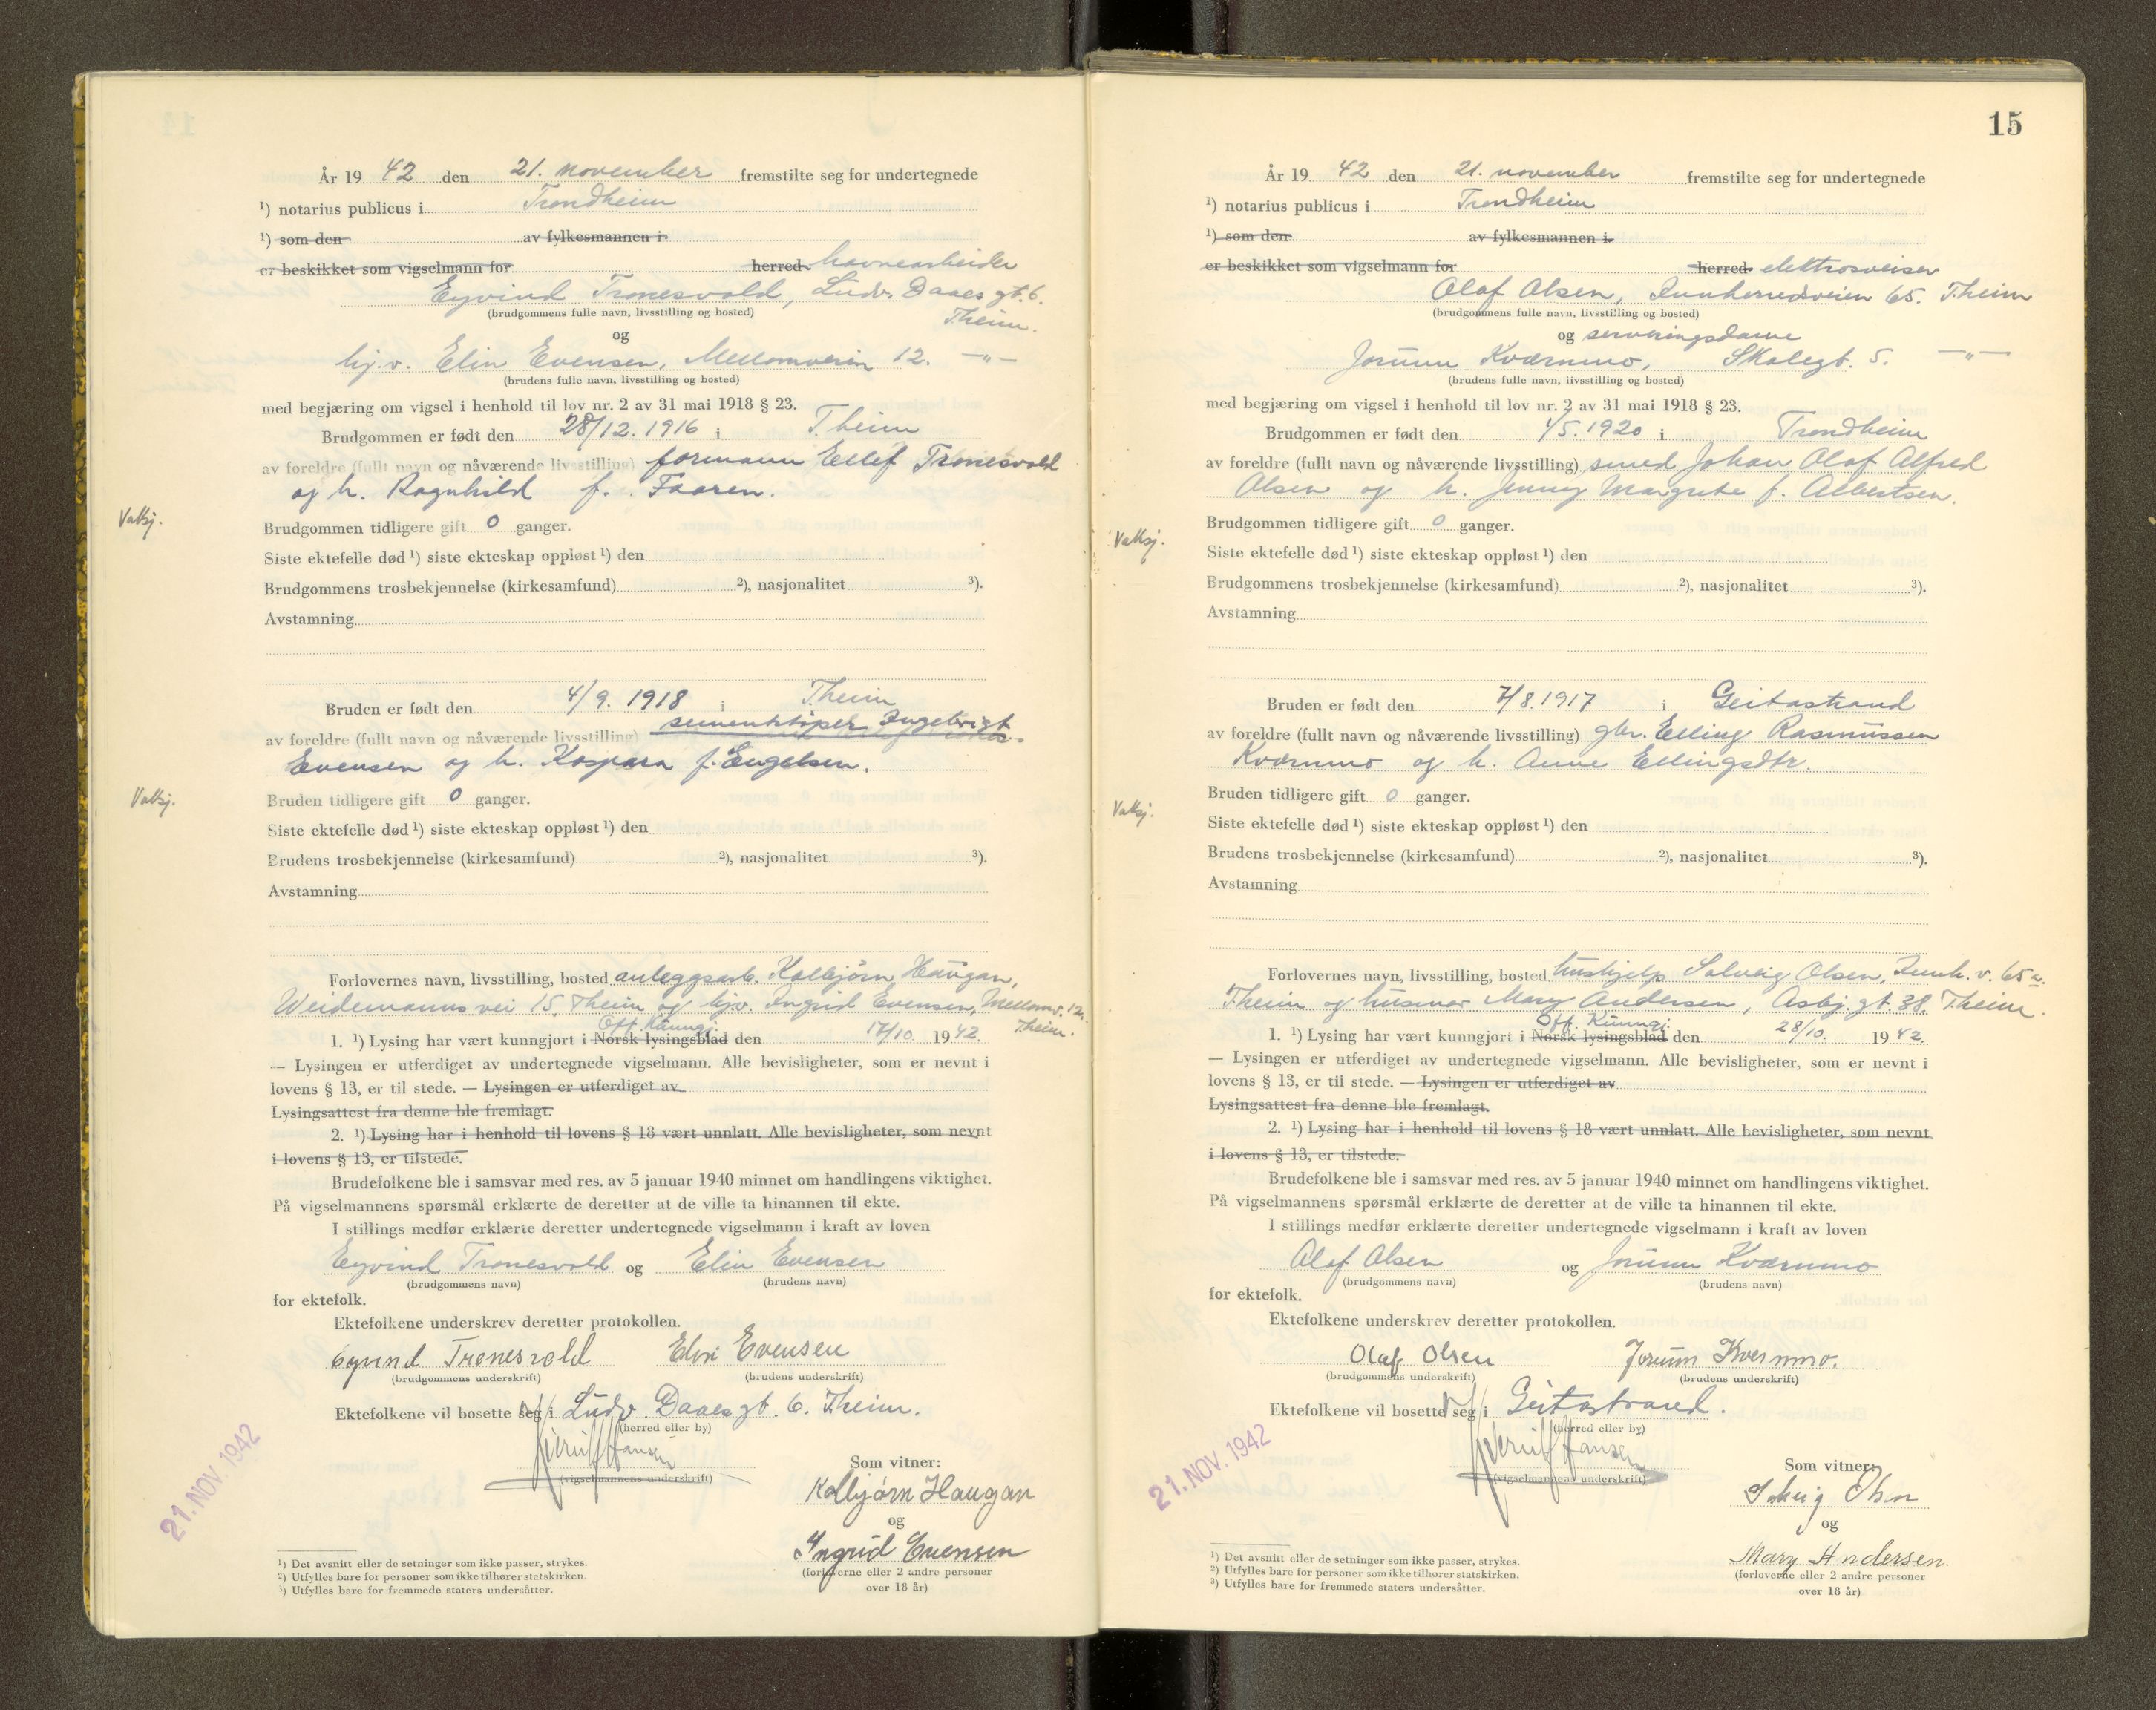 År 19 42 den 21. november fremstilte seg for undertegnede
¹) notarius publicus i Trondheim
¹) som den av fylkesmannen i
er beskikket som vigselmann for herred havnearbeider
Eyvind Tronesvold, Ludv. Daaes gt. 6.
(brudgommens fulle navn, livsstilling og bosted)
T.heim.
og
hj.v. Elin Evensen, Mellomveien 12. —"—
(brudens fulle navn, livsstilling og bosted)
med begjæring om vigsel i henhold til lov nr. 2 av 31 mai 1918 § 23.
Brudgommen er født den 28/12. 1916 i T.heim
av foreldre (fullt navn og nåværende livsstilling) formann Ellef Tronesvold
og h. Ragnhild f. Faaren.
Valsj.
Brudgommen tidligere gift 0 ganger.
Siste ektefelle død ¹) siste ekteskap oppløst ¹) den
Brudgommens trosbekjennelse (kirkesamfund) ²), nasjonalitet ³).
Avstamning
Bruden er født den 4/9. 1918 i T.heim
av foreldre (fullt navn og nåværende livsstilling) sementstøper Ingebrigt
Evensen og h. Kaspara f. Engelsen.
Valsj.
Bruden tidligere gift 0 ganger.
Siste ektefelle død ¹) siste ekteskap oppløst ¹) den
Brudens trosbekjennelse (kirkesamfund) ²), nasjonalitet ³).
Avstamning
Forlovernes navn, livsstilling, bosted anleggsarb. Kolbjørn Haugan,
Weidemanns vei 15, T.heim og hj.v. Ingrid Evensen, Mellomv. 12.
T.heim.
Off. Kunngj.
1. ¹) Lysing har vært kunngjort i Norsk lysingsblad den 17/10. 1942.
— Lysingen er utferdiget av undertegnede vigselmann. Alle bevisligheter, som er nevnt i
lovens § 13, er til stede. — Lysingen er utferdiget av
Lysingsattest fra denne ble fremlagt.
2. ¹) Lysing har i henhold til lovens § 18 vært unnlatt. Alle bevisligheter, som nevnt
i lovens § 13, er tilstede.
Brudefolkene ble i samsvar med res. av 5 januar 1940 minnet om handlingens viktighet.
På vigselmannens spørsmål erklærte de deretter at de ville ta hinannen til ekte.
I stillings medfør erklærte deretter undertegnede vigselmann i kraft av loven
Eyvind Tronesvold og Elin Evensen
(brudgommens navn) (brudens navn)
for ektefolk.
Ektefolkene underskrev deretter protokollen.
Eyvind Tronesvold Elin Evensen
(brudgommens underskrift) (brudens underskrift)
Ektefolkene vil bosette seg i Ludv. Daaes gt. 6. T.heim.
(herred eller by)
(vigselmannens underskrift)
21. NOV. 1942
Som vitner:
Kolbjørn Haugan
og
Ingrid Evensen
(forloverne eller 2 andre personer
over 18 år)
¹) Det avsnitt eller de setninger som ikke passer, strykes.
²) Utfylles bare for personer som ikke tilhører statskirken.
³) Utfylles bare for fremmede staters undersåtter.
15
År 19 42 den 21. november fremstilte seg for undertegnede
¹) notarius publicus i Trondheim
¹) som den av fylkesmannen i
er beskikket som vigselmann for herred elektrosveiser
Olaf Olsen, Innherredsveien 65. T.heim
(brudgommens fulle navn, livsstilling og bosted)
og serveringsdame
Jorunn Kværnmo, Skolegt. 5. —"—
(brudens fulle navn, livsstilling og bosted)
med begjæring om vigsel i henhold til lov nr. 2 av 31 mai 1918 § 23.
Brudgommen er født den 1/5. 1920 i Trondheim
av foreldre (fullt navn og nåværende livsstilling) smed Johan Olaf Alfred
Olsen og h. Jenny Margrete f. Albertsen.
Brudgommen tidligere gift 0 ganger.
Valsj.
Siste ektefelle død ¹) siste ekteskap oppløst ¹) den
Brudgommens trosbekjennelse (kirkesamfund) ²), nasjonalitet ³).
Avstamning
Bruden er født den 7/8. 1917 i Geitastrand
av foreldre (fullt navn og nåværende livsstilling) gbr. Elling Rasmussen
Kværnmo og h. Anne Ellingsdtr.
Bruden tidligere gift 0 ganger.
Valsj.
Siste ektefelle død ¹) siste ekteskap oppløst ¹) den
Brudens trosbekjennelse (kirkesamfund) ²), nasjonalitet ³).
Avstamning
Forlovernes navn, livsstilling, bosted hushjelp Solveig Olsen, Innh. v. 65
T.heim og husmor Mary Andersen, Asbj. gt. 38. T.heim.
Off. Kunngj.
1. ¹) Lysing har vært kunngjort i Norsk lysingsblad den 28/10. 1942.
— Lysingen er utferdiget av undertegnede vigselmann. Alle bevisligheter, som er nevnt i
lovens § 13, er til stede. — Lysingen er utferdiget av
Lysingsattest fra denne ble fremlagt.
2. ¹) Lysing har i henhold til lovens § 18 vært unnlatt. Alle bevisligheter, som nevnt
i lovens § 13, er tilstede.
Brudefolkene ble i samsvar med res. av 5 januar 1940 minnet om handlingens viktighet.
På vigselmannens spørsmål erklærte de deretter at de ville ta hinannen til ekte.
I stillings medfør erklærte deretter undertegnede vigselmann i kraft av loven
Olaf Olsen og Jorunn Kværnmo
(brudgommens navn) (brudens navn)
for ektefolk.
Ektefolkene underskrev deretter protokollen.
Olaf Olsen Jorunn Kvernmo.
(brudgommens underskrift) (brudens underskrift)
Ektefolkene vil bosette seg i Geitastrand.
(herred eller by)
(vigselmannens underskrift)
21. NOV. 1942
Som vitner:
Solveig Olsen
og
Mary Andersen.
(forloverne eller 2 andre personer
over 18 år)
¹) Det avsnitt eller de setninger som ikke passer, strykes.
²) Utfylles bare for personer som ikke tilhører statskirken.
³) Utfylles bare for fremmede staters undersåtter.